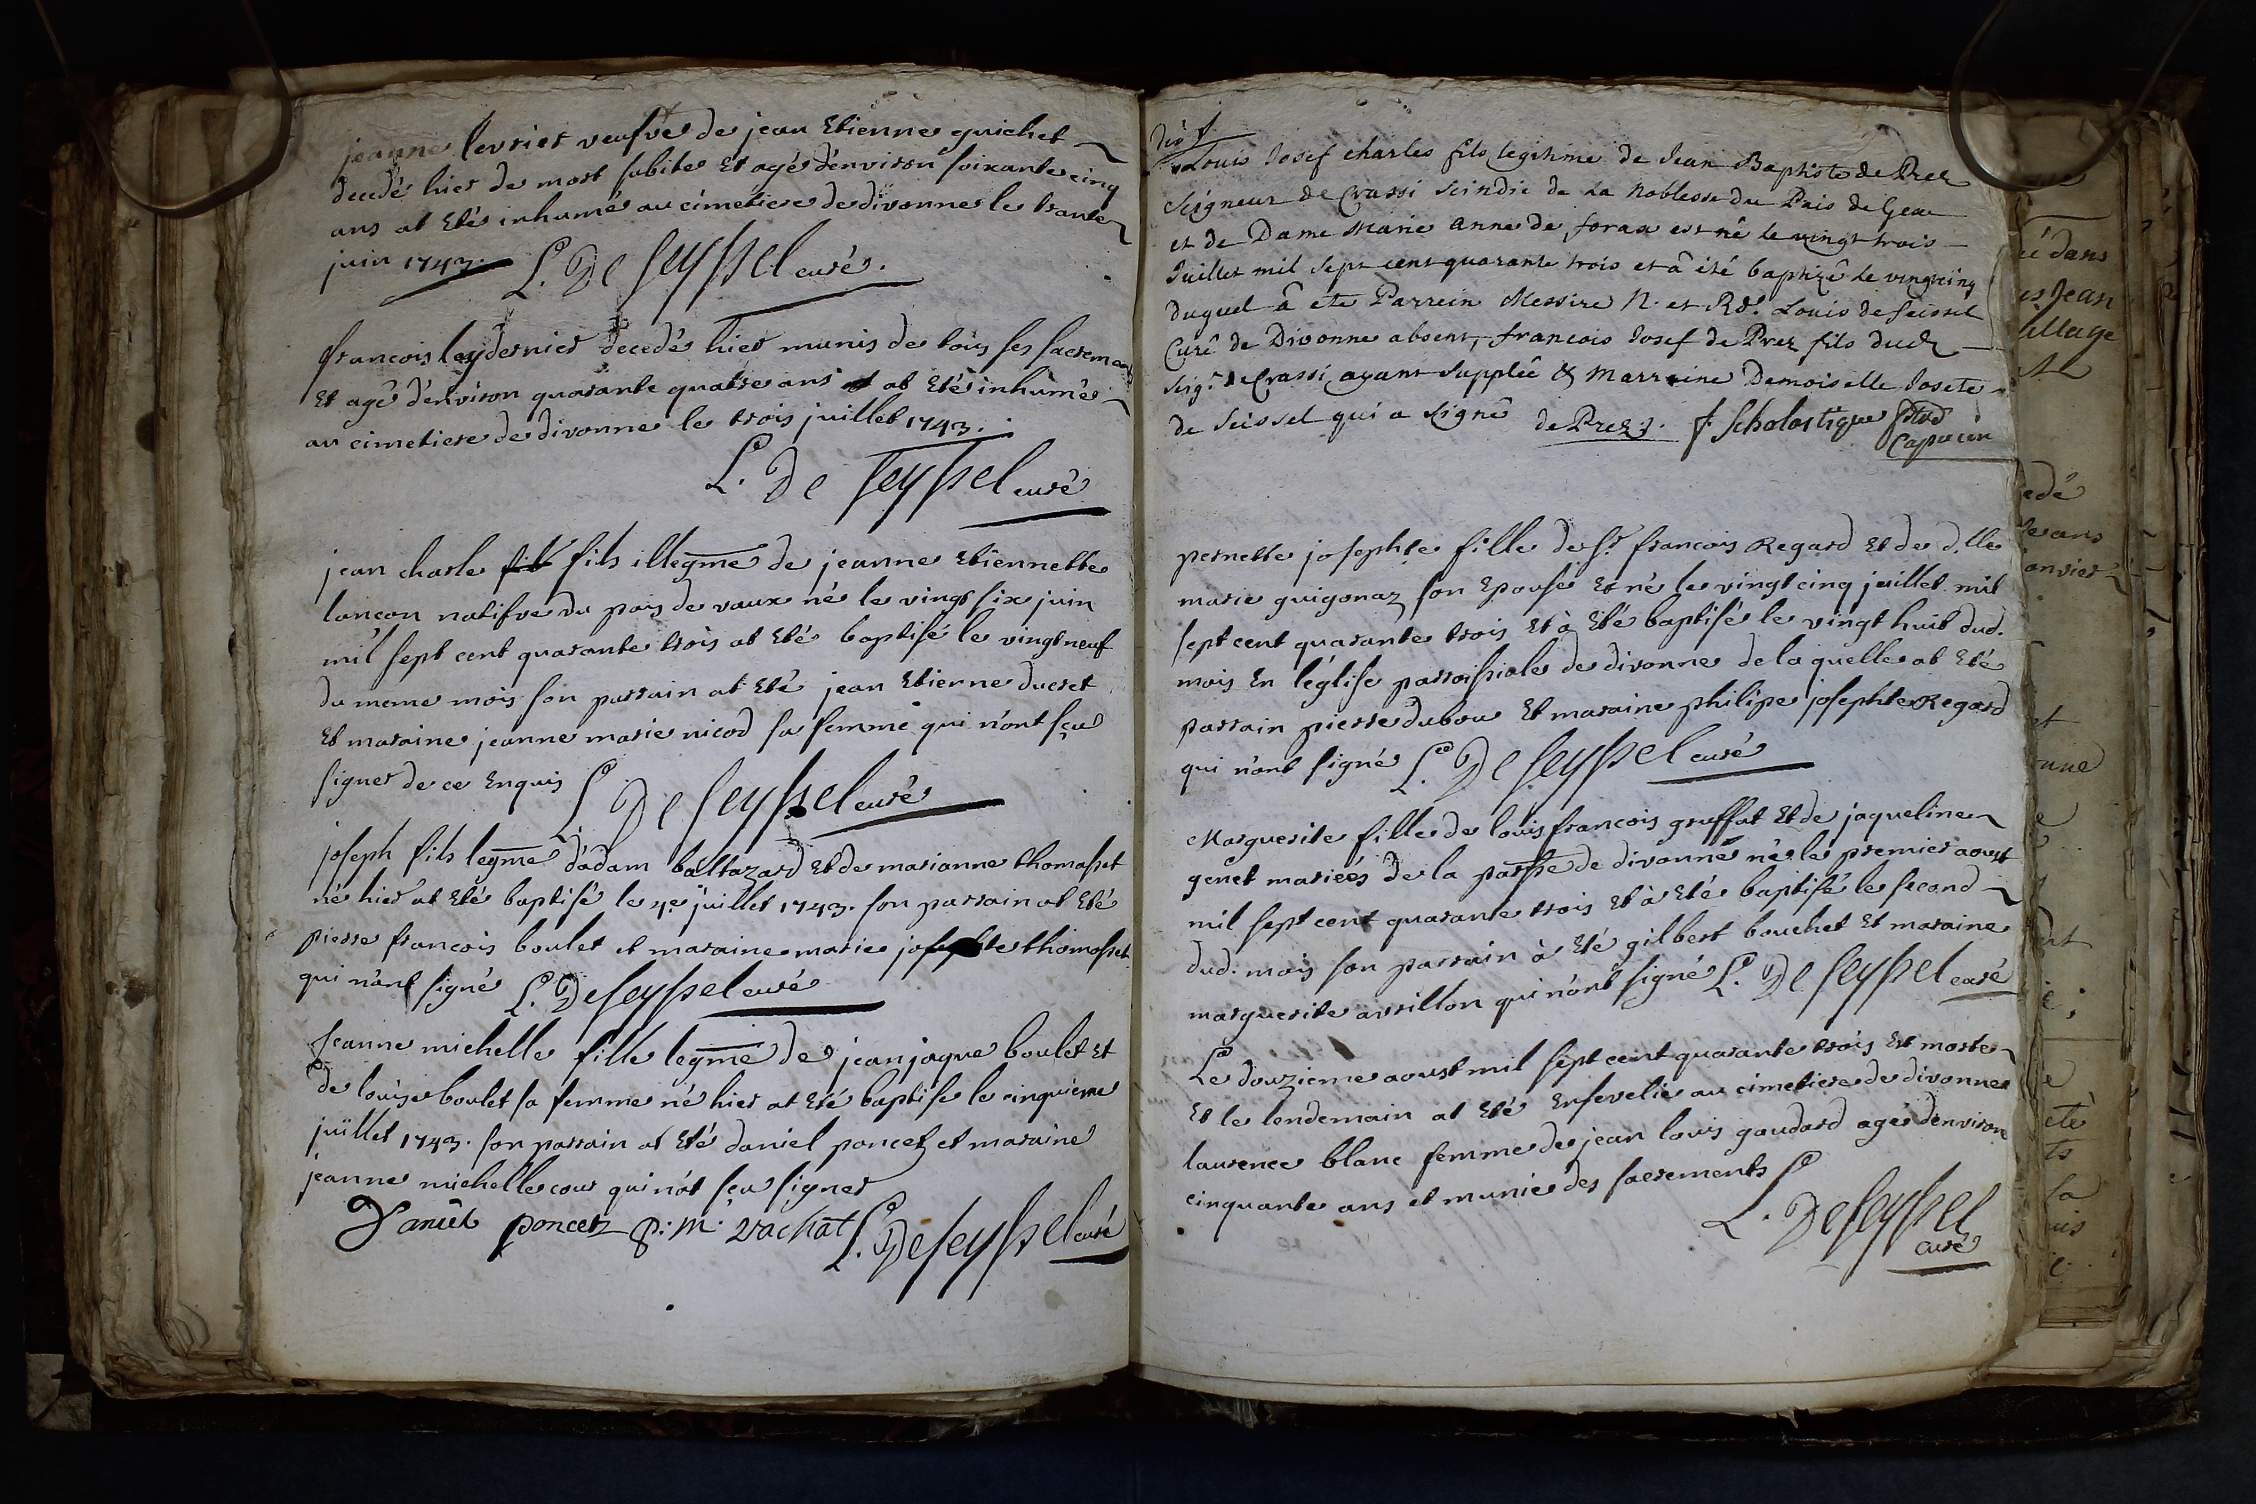 jeanne levrier veufve de jean Etienne guichet
decedé hier de mort subite et agé d'environ soixante cinq
ans at eté inhumé au cimetiere de divonne le trante
juin 1743. L. De Seyssel curé.
francois leydernier decedé hier munis de tous ses sacremans
Et agé d'environ quarante quatre ans at eté inhumé
au cimetiere de divonne le trois juillet 1743.
L. De Seyssel curé
jean charle fils illegme de jeanne Etiennette
lancon natifve du pays de vaux né le vingt six juin
mil sept cent quarante trois at eté baptisé le vingt neuf
du meme mois son parrain at eté jean Etienne ducret
Et maraine jeanne marie nicod sa femme qui n'ont sçu
signer de ce Enquis L. De Seyssel curé
joseph fils legme d'adam baltazard Et de marianne thomasset
né hier at eté baptisé le 4e juillet 1743. son parrain at Eté
pierre francois boulet et maraine marie josephte thomasset
qui n'ont signé L. De Seyssel curé
Jeanne michelle fille legme de jean jaque boulet Et
de louise boulet sa femme né hier at eté baptisé le cinquieme
juillet 1743. son parrain at Eté daniel poncet et maraine
jeanne michelle cour qui n'ot sçu signer
Daniel poncetz p: m. vachat L. De Seyssel curé
Louis Josef charles fils legitime de Jean Baptiste de Prez
Seigneur de Crassi Scindic de La Noblesse du Pais de Gex
et de Dame Marie Anne de foras est né le vingt trois
Juillet mil sept cent quarante trois et â été baptizé le vingt cinq
duquel â ete Parrein Messire N. et Rd. Louis de Seissel
Curé de Divonne absent, francois Josef de Prez fils dud.
Seigr. de Crassi ayant Supplée & Marraine Demoiselle Josete
de Seissel qui a signé de Prez. f Scholastique
Capucin
pernette josephte fille de Sr. francois Regard Et de d.lle
marie guigonaz son Epouse Et né le vingt cinq juillet mil
sept cent quarante trois Et à Eté baptisé le vingt huit dud.
mois En l'église parroissiale de divonne de la quelle at Eté
parrain pierre dubou Et maraine philipe josephte Regard
qui n'ont signé L. De Seyssel curé
Marguerite fille de louis francois gruffat Et de jaqueline
genet mariéés de la parsse de divonne né le premier aoust
mil sept cent quarante trois Et à Eté baptisé le second
dud. mois son parrain à Eté gilbert bouchet Et maraine
marguerite avrillon qui n'ont signé L. De Seyssel curé
Le douzieme aoust mil sept cent quarante trois Est morte
Et le lendemain at Eté Ensevelie au cimetiere de divonne
laurence blanc femme de jean louis goudard agé d'environ
cinquante ans et munie des sacrements
L. De Seyssel
curé